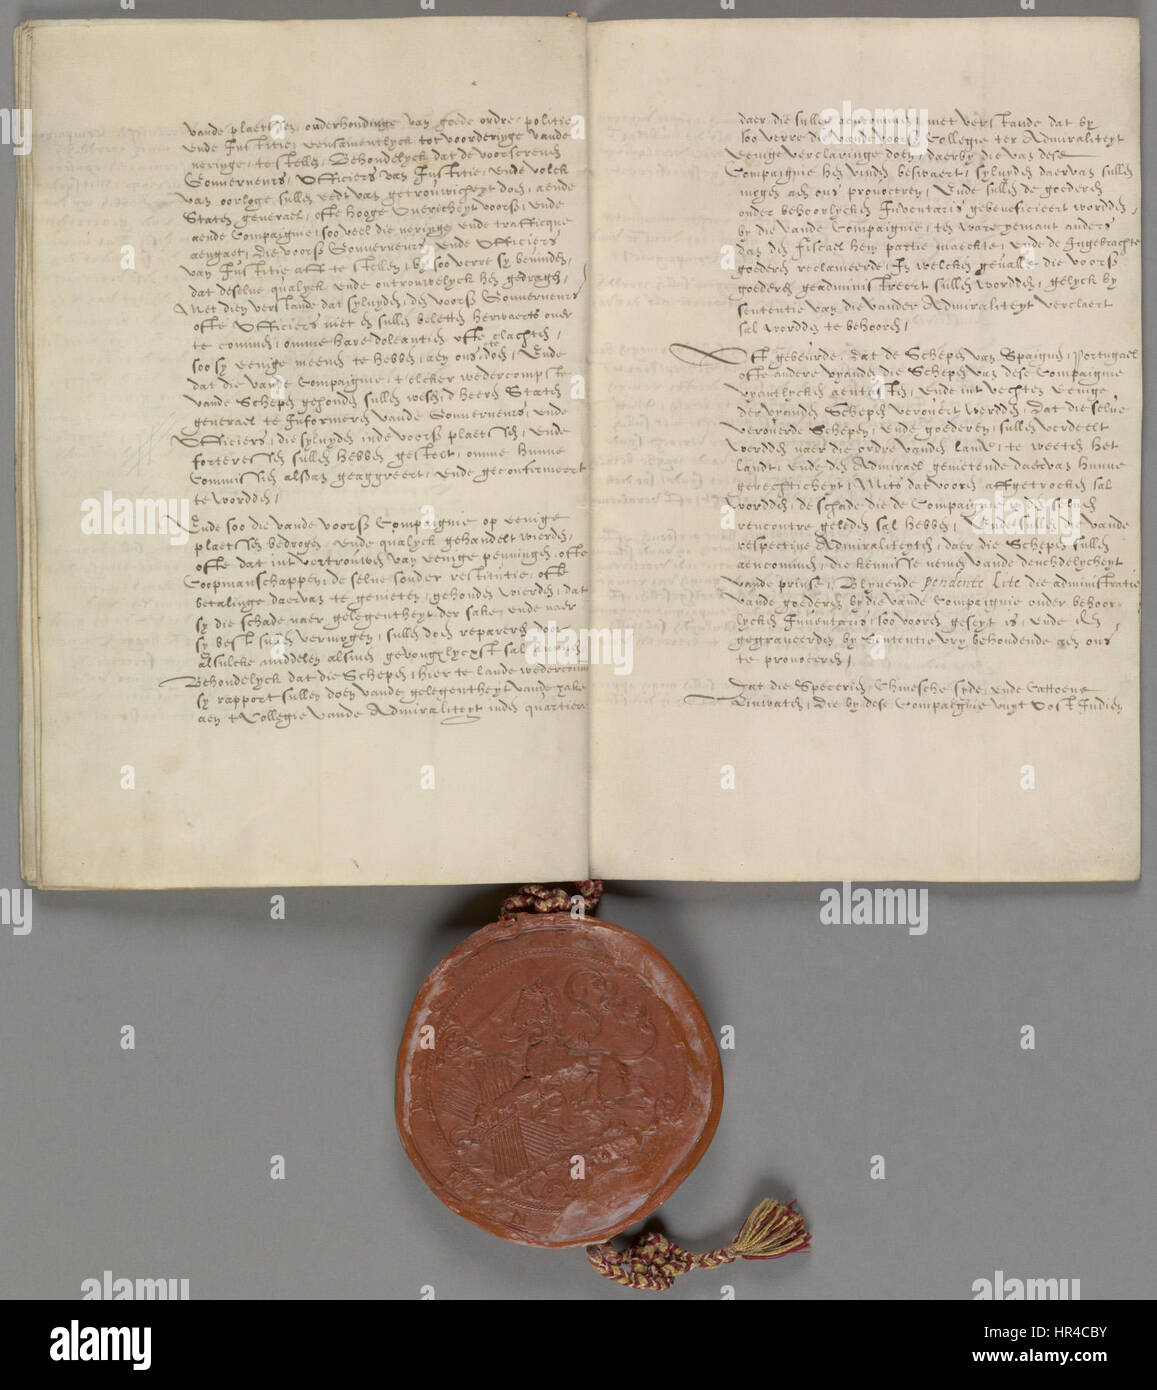 vande plaetssen, onderhondinge van goede ordre, politie
ende Justitie, eensamentlyck tot voorderinge vande
neringe, te stellen, Behoudelyck dat de voorscreven
Gouverneurs, Officiers van Justitie, ende volck
van oorloge sullen eedt van getrouwicheyt doen, aende
Staten generael, ofte hooge Overicheyt voorsz, ende
aende Compaignie, soo veel die neringe ende trafficque
aengaet, die voorsz Gouverneurs ende Officiers
van Justitie aff te stellen, by soo verre sy bevinden,
dat deselve qualyck ende ontrouwelyck hen gedragen,
Met dien verstande dat syluyden, den voorsz Gouverneurs
ofte Officiers niet en sullen beletten herwaerts over
te commen, omme hare doleantien ofte clachten,
soo sy eenige meenen te hebben, aen ons te doen, Ende
dat die vande Compaignie, t'elcker wedercompste
vande Schepen gehouden sullen wesen d'heeren Staten
generael te Informeren vande Gouverneurs, ende
Officiers, die sylvyden inde voorsz plaetssen, ende
forteressen sullen hebben gestelt, omme hunne
Commissien alsdan geaggreert, ende geconfirmeert
te worden,
Ende soo die vande voorsz Compaignie op eenige
plaetssen bedrogen, ende qualyck gehandelt wierden,
ofte dat int vertrouwen van eenige penningen, ofte
Coopmanschappen, de selve sonder restitutie, oft
betalinge daervan te genieten, gehouden wierden, dat
sy die schade naer gelegentheyt der sake, ende naer
sy best sullen vermogen, sullen doen repareren door
alsulcke middelen alsmen gevougelycxst sal kunnen,
Behoudelyck dat die Schepen, hier te lande wedercomende
sy rapport sullen doen vande gelegentheyt vande zake
aen t'Collegie vande Admiraliteyt inden quartiere
daer die sullen aencommen, met verstande dat by
soo verre die vande voorsz Collegie ter Admiraliteyt
eenige verclaringe doen, daerby die van dese
Compaignie hen vinden beswaert, sylvyden daervan sullen
mogen aen ons provoceren, Ende sullen de goederen
onder behoorlycken Inventaris gebeneficieert worden,
by die vande Compaignie, ten ware yemant anders
dan den fiscael hem partie maeckte, ende de Ingebrachte
goederen reclameerde, In welcken gevalle die voorsz
goederen geadministreert sullen worden, gelyck by
sententie van die vander Admiraliteyt verclaert
sal worden te behooren,
Oft gebeurde, dat de Schepen van Spaignen, Portugael
ofte andere vyanden die Schepen van dese Compaignie
vyantlycken aentasten, ende int vechten eenige
der vyanden Schepen verovert werden, Dat die selve
veroverde Schepen, ende goederen, sullen verdeelt
werden naer die ordre vanden lande, te weeten het
landt, ende den Admirael genietende daervan hunne
gerechticheyt, Mits dat vooren affgetrocken sal
worden, de schade die de Compaignie in de selve
rencontre geleden sal hebben, Ende sullen die vande
respective Admiraliteyten, daer die Schepen sullen
aencommen, die kennisse nemen vande deuchdelycheyt
vande prinse, Blyvende pendente Lite die administratie
vande goederen by die vande Compaignie onder behoor-
lycken Inventaris, soo vooren geseyt is, ende den
gegraveerden by Sententie vry behoudende aen ons
te provoceren,
Dat die Specerien, Chinesche syde, ende Cattoene
Lynwaten, Die by dese Compaignie vuyt Oost Indien
alamy stock photo
HR4CBY
www.alamy.com